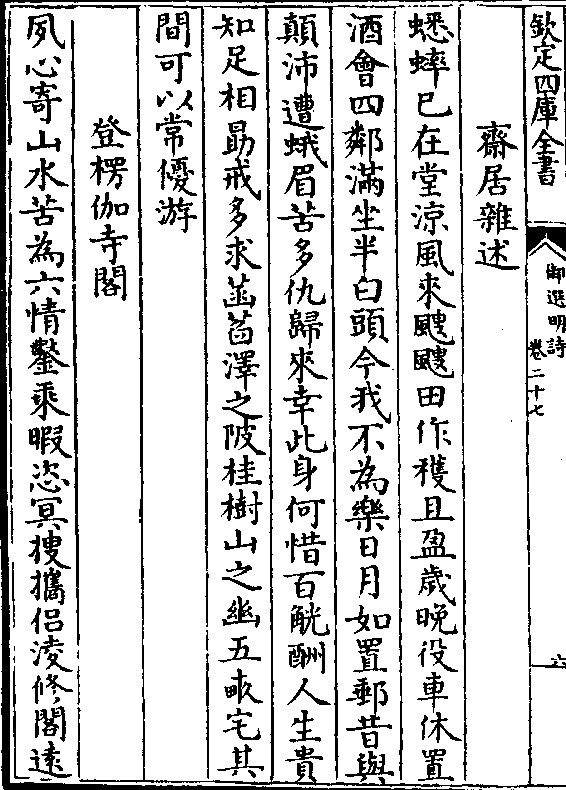 欽定四庫全書
御選明詩
卷二十七
六
齋居雜述
蟋蟀已在堂涼風來颼颼田作穫且盈歲晚役車休置
酒會四鄰滿坐半白頭今我不為樂日月如置郵昔與
顛沛遭蛾眉苦多仇歸來幸此身何惜百觥酬人生貴
知足相勗戒多求菡萏澤之陂桂樹山之幽五畝宅其
間可以常優游
登楞伽寺閣
夙心寄山水苦為六情鑿乘暇恣冥搜攜侣淩修閣遠